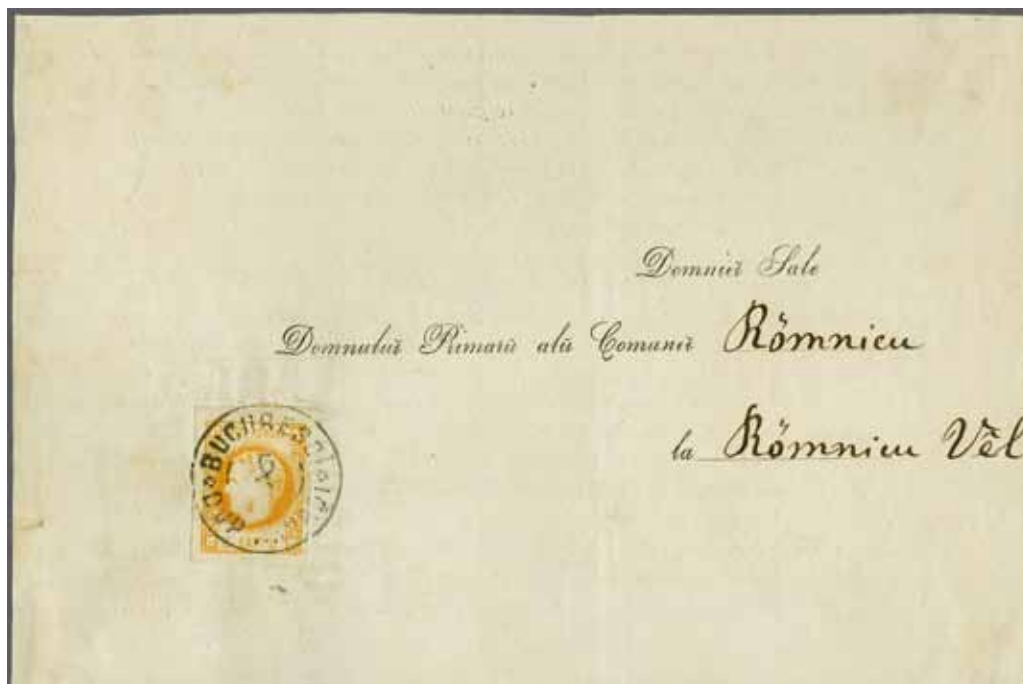 Domnieĭ Sale
Domnuluĭ Primarŭ alŭ Comuneĭ Römnicu
la Römnicu Vêl
BUCURESCI
5